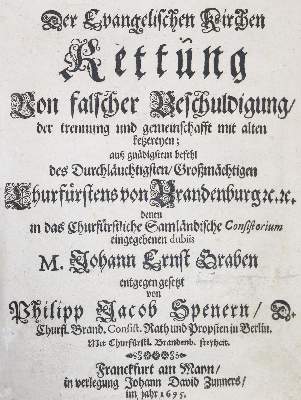 Der Evangelischen Kirchen
Rettüng
Von falscher Beschuldigung/
der trennung und gemeinschafft mit alten
ketzereyen;
auß gnädigstem befehl
des Durchläuchtigsten/Großmächtigen
Churfürstens von Brandenburg ꝛc. ꝛc.
denen
in das Churfürstliche Samländische Consistorium
eingegebenen dubiis
M. Johann Ernst Graben
entgegen gesetzt
von
Philipp Jacob Spenern/ D.
Churfl. Brand. Consist. Rath und Propsten in Berlin.
Mit Churfürstl. Brandenb. freyheit.
Franckfurt am Mayn/
in verlegung Johann David Zunners/
im jahr 1695.